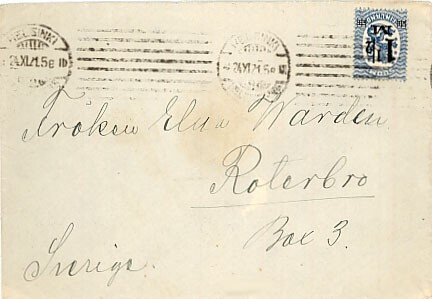 HELSINKI
24.XI.21.5 8
HELSINKI
24.XI.21.5 8
1½ Mk
Fröken Elsa Warden
Roterbro
Box 3.
Sverige.